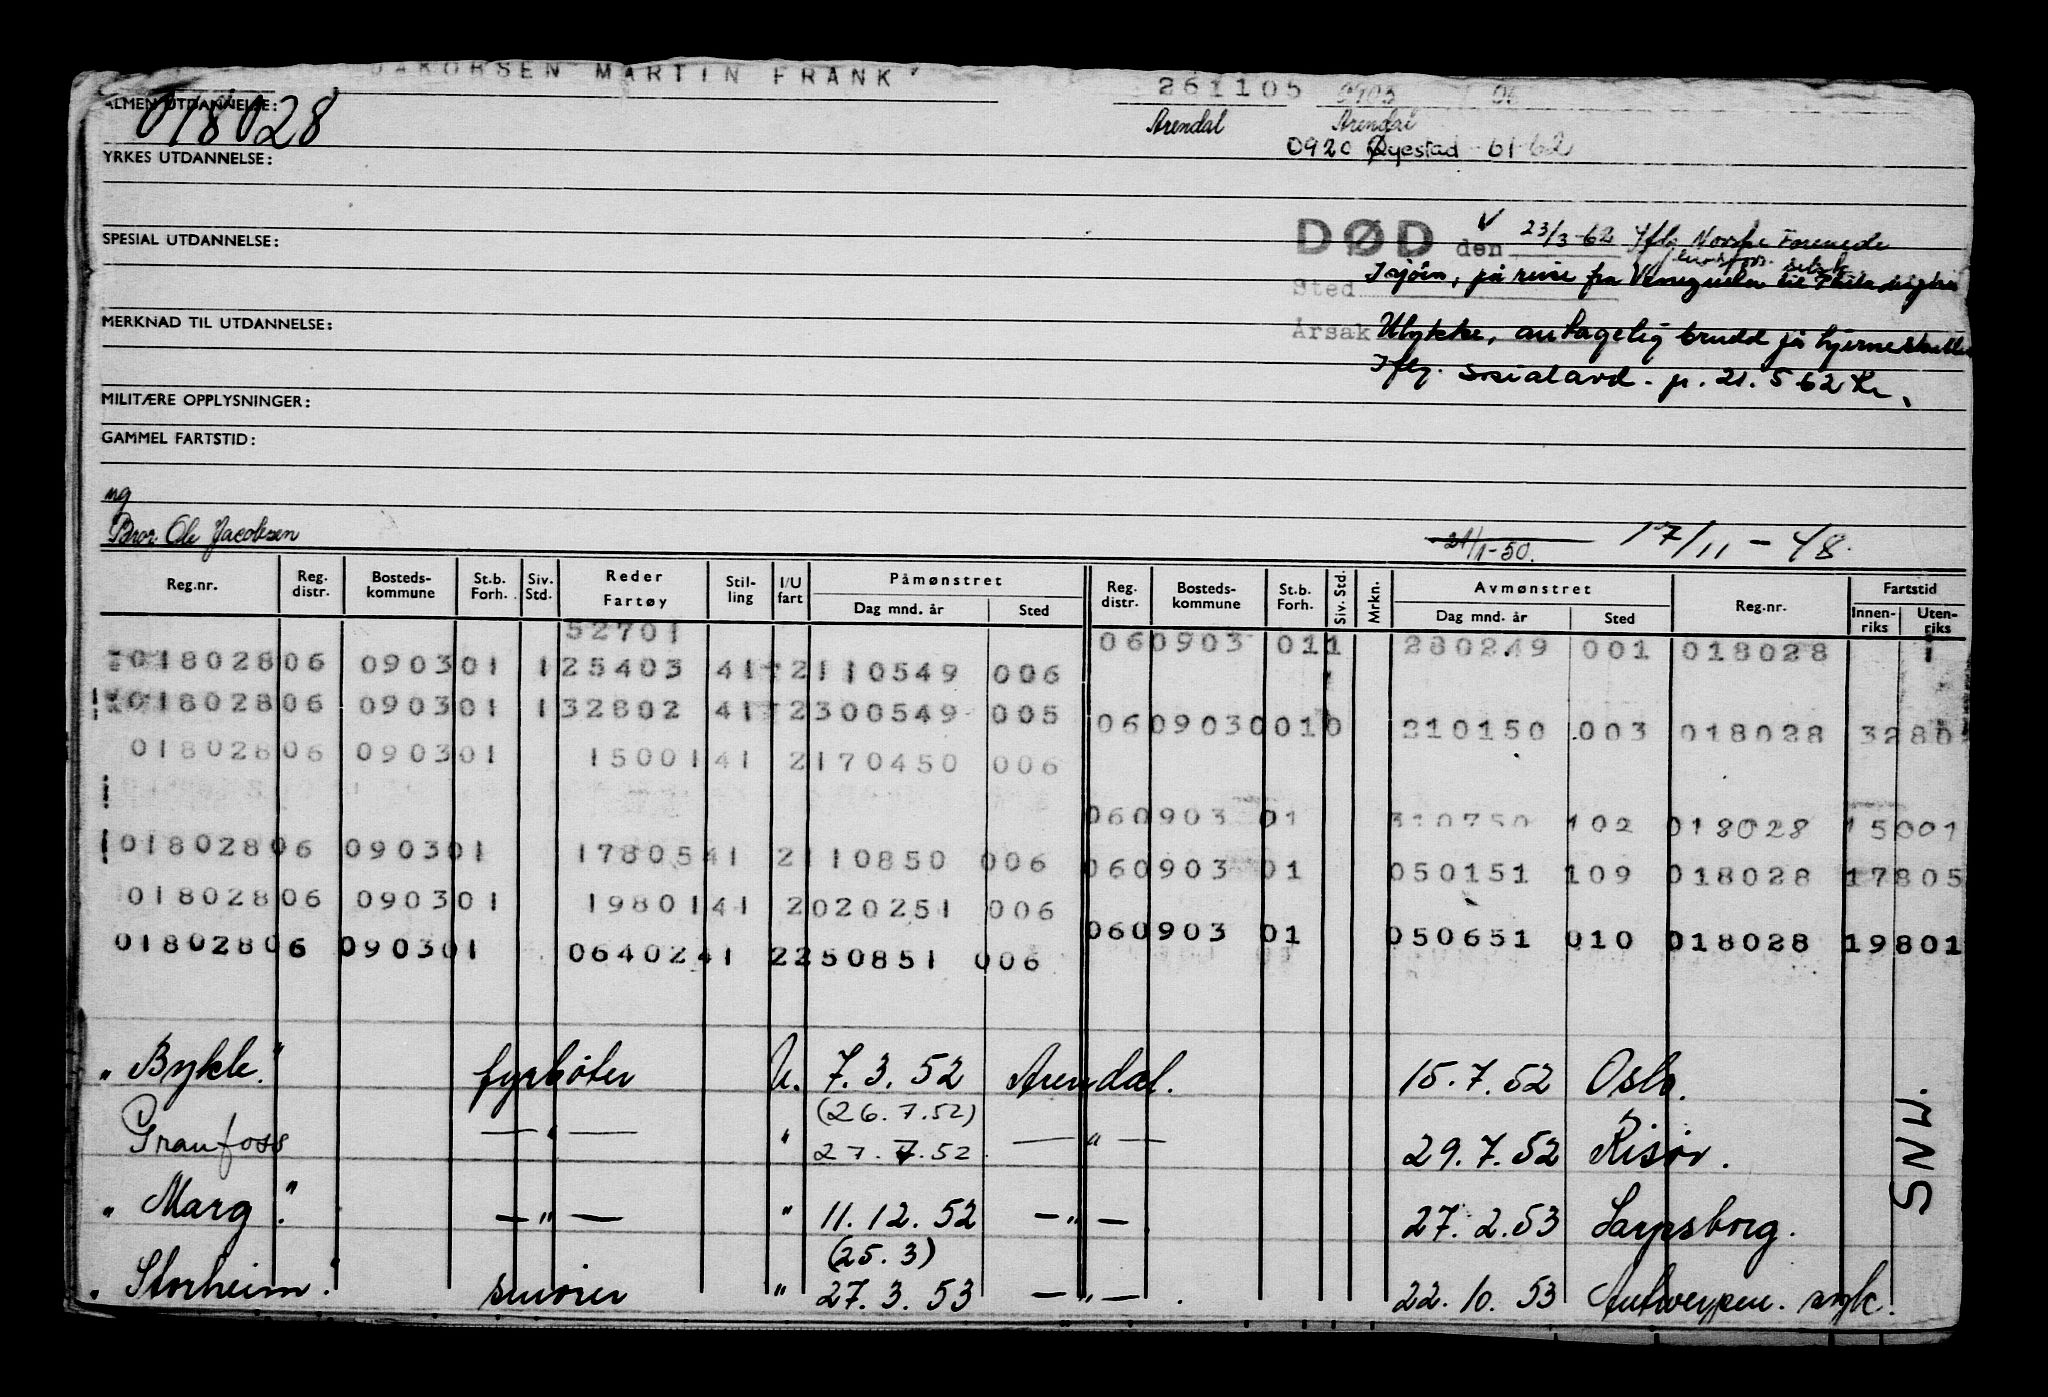 JAKOBSEN MARTIN FRANK
261105 0903 01
ALMEN UTDANNELSE:
018028
Arendal Arendal
0920 Øyestad 61-62
YRKES UTDANNELSE:
SPESIAL UTDANNELSE:
DØD den 23/3-62 Iflg. Norske Forenede
Livsfors. selsk.
Sted I sjøen, på reise fra Venezuela til
MERKNAD TIL UTDANNELSE:
Årsak Ulykke, antagelig brudd på hjerneskallen
Iflg. Sosialavd. p. 21.5 62
MILITÆRE OPPLYSNINGER:
GAMMEL FARTSTID:
ug
Bror Ole Jacobsen
21/1-50. 17/11-48.
Reg.nr. Reg. distr. Bosteds-kommune St.b. Forh. Siv. Std. Reder Fartøy Stil-ling I/U fart Påmønstret Dag mnd. år Sted Reg. distr. Bosteds-kommune St.b. Forh. Siv. Std. Mrkn. Avmønstret Dag mnd. år Sted Reg.nr. Fartstid Innen-riks Uten-riks
52701
060903 011 280249 001 018028
01802806 090301 125403 41 2110549 006
01802806 090301 132802 41 2300549 005
0609030010 210150 003 018028 3280
01802806 090301 1500141 2170450 006
060903 01 310750 102 018028 15001
01802806 090301 1780541 2110850 006
060903 01 050151 109 018028 17805
01802806 090301 1980141 2020251 006
060903 01 050651 010 018028 19801
01802806 090301 0640241 2250851 006
"Bykle" fyrbøter U. 7.3.52 Arendal. 15.7.52 Oslo.
(26.7.52)
Granfoss —"— " 27.7.52 —"— 29.7.52 Risør.
SNW.
"Marg". —"— " 11.12.52 —"—. 27.2.53 Sarpsborg.
(25.3)
"Storheim". smører " 27.3.53 —"—. 22.10.53 Antwerpen. syk.